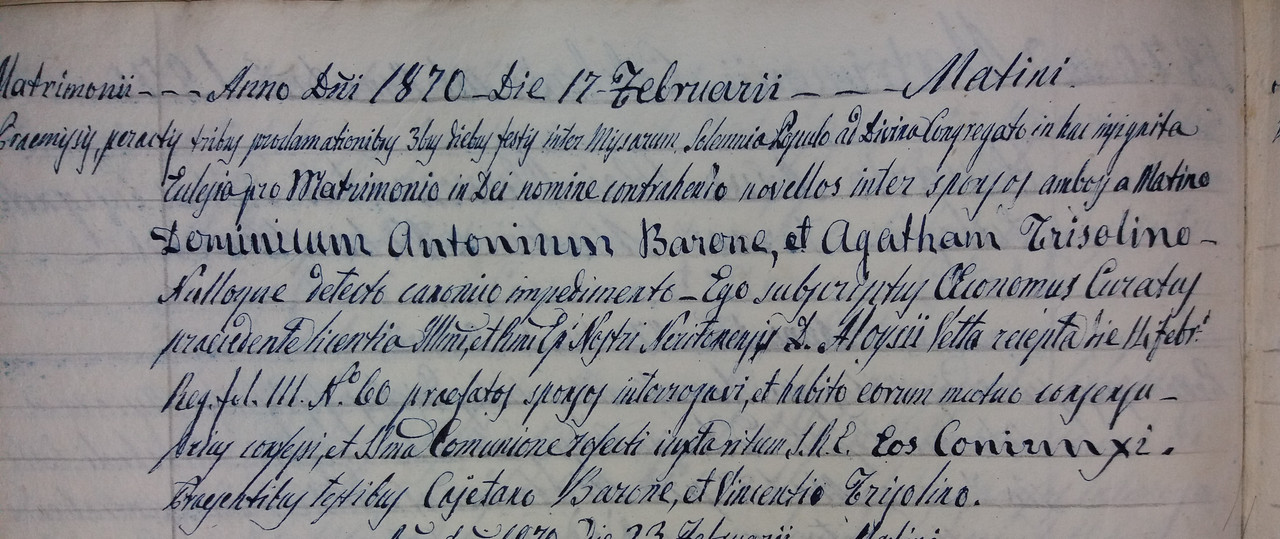 Matrimonii - - - Anno Dñi 1870 - Die 17 - Februarii - - - Matini.
Praemissis, peractis tribus proclamationibus 3bus diebus festis inter Missarum Solemnia Populo ad Divina Congregato in hac insignita
Eclesia pro Matrimonio in Dei nomine contrahendo novellos inter sponsos ambos a Matino
Dominicum Antonium Barone, et Agatham Trisolino -
Nulloque detecto canonico impedimento - Ego subscriptus Œconomus Curatus
praecedente licentia Illmi, et Rmi Epi Nostri Neritonensis D. Aloysii Vetta recepta die 14 febr.
Reg. fol. 111. N.º 60 praefatos sponsos interrogavi, et habito eorum mutuo consensu -
prius confessi, et Sma Comunione refecti iuxta ritum S. R. E. Eos Coniunxi.
Praesentibus testibus Cajetano Barone, et Vincentio Trisolino.
1870 Die 23 Februarii Matini